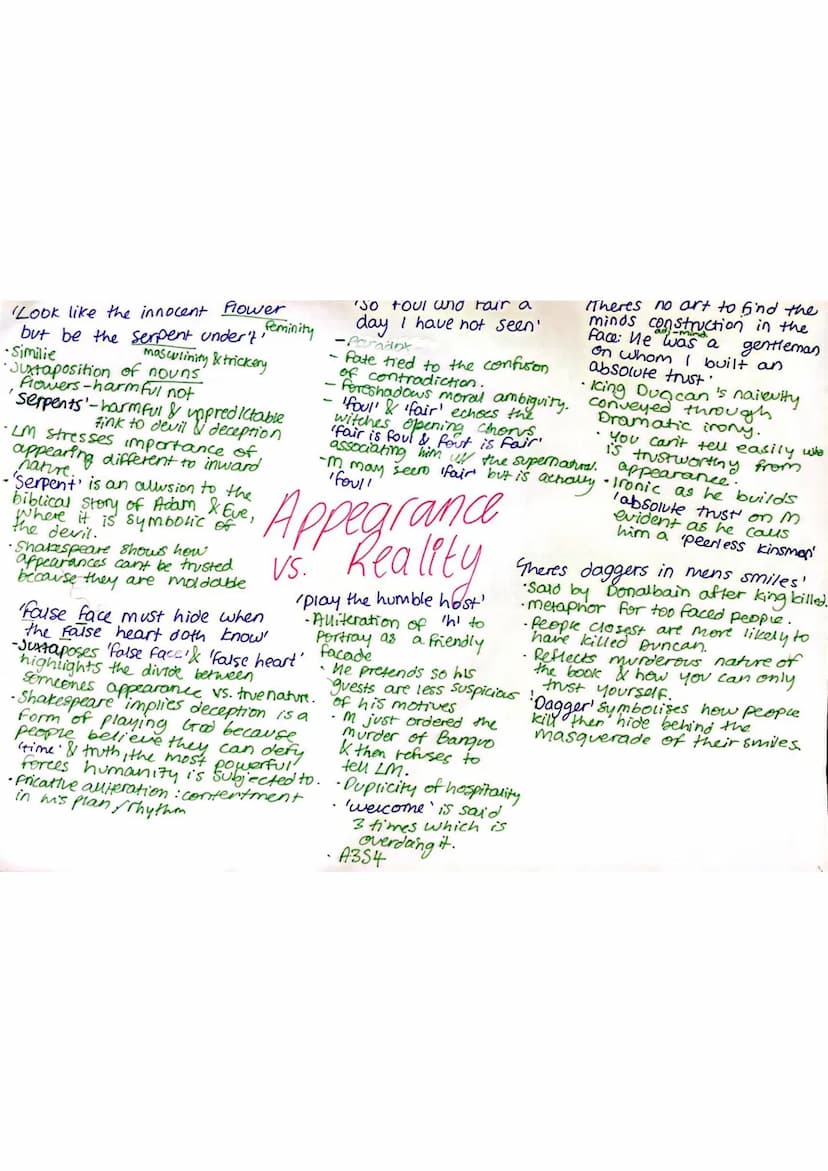 'Look like the innocent flower
feminity
but be the serpent under't'
masculinity & trickery
· Similie
· Juxtaposition of nouns
flowers - harmful not
'Serpents' - harmful & unpredictable
link to devil & deception
· LM stresses importance of
appearing different to inward
nature.
· 'Serpent' is an allusion to the
biblical story of Adam & Eve,
where it is symbolic of
the devil.
· Shakespeare shows how
appearances cant be trusted
because they are moldable
'So foul and fair a
day I have not seen'
- Paradox
- Fate tied to the confusion
of contradiction.
- Foreshadows moral ambiguity.
- 'foul' & 'fair' echoes the
witches opening chorus
'fair is foul & foul is fair'
associating him w/ the supernatural.
- M may seem 'fair' but is actually
'foul'
Theres no art to find the
minds construction in the
face: He was a gentleman
on whom I built an
absolute trust'
· King Duncan's naievity
conveyed through
Dramatic irony.
· You can't tell easily who
is trustworthy from
appearance.
· Ironic as he builds
'absolute trust' on M
evident as he calls
him a 'peerless kinsman'
Appearance
vs. Reality
'False face must hide when
the false heart doth know'
- Juxtaposes 'false face' & 'false heart'
highlights the divide between
someones appearance vs. true nature.
· Shakespeare implies deception is a
form of playing God because
people believe they can defy
'time' & truth, the most powerful
forces humanity is subjected to.
· Fricative alliteration: contentment
in his plan / rhythm
'Play the humble host'
· Alliteration of 'h' to
portray as a friendly
facade
· He pretends so his
guests are less suspicious
of his motives
· M just ordered the
murder of Banquo
& then refuses to
tell LM.
· Duplicity of hospitality
· 'welcome' is said
3 times which is
overdoing it.
· A3S4
'Theres daggers in mens smiles'
· Said by Donalbain after king killed.
· metaphor for too faced people.
· People closest are more likely to
have killed Duncan.
· Reflects murderous nature of
the book & how you can only
trust yourself.
'Dagger' symbolises how people
kill then hide behind the
masquerade of their smiles.